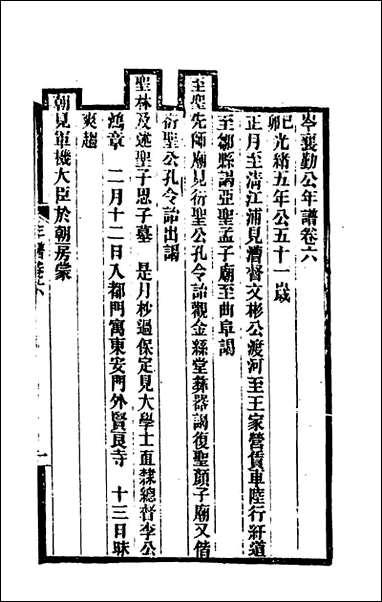 岑襄勤公年譜卷六
己卯光緒五年公五十一歲
正月至清江浦見漕督文彬公渡河至王家營賃車陸行紆道
至鄒縣謁亞聖孟子廟至曲阜謁
至聖先師廟見衍聖公孔令詒觀金絲堂彝器謁復聖顏子廟又偕
衍聖公孔令詒出謁
聖林及述聖子思子墓　是月杪過保定見大學士直隸總督李公
鴻章　二月十二日入都門寓東安門外賢良寺　十三日昧
爽趨
朝見軍機大臣於朝房蒙
年譜卷六
一